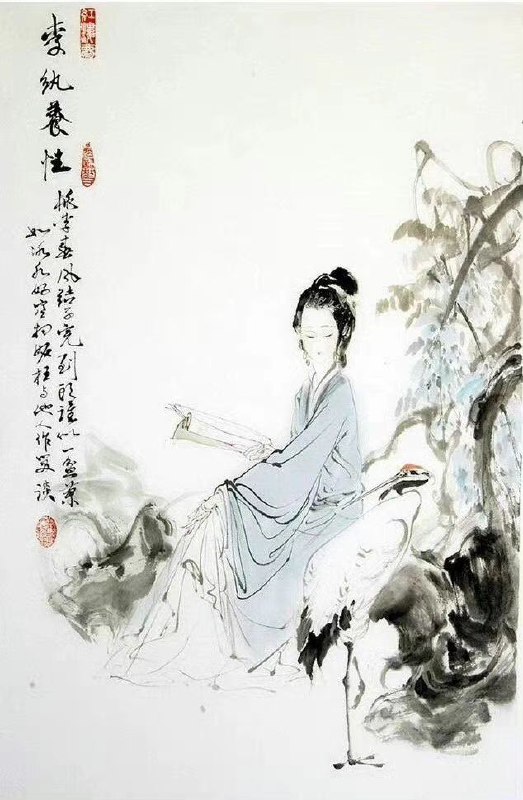 紅樓夢
李紈養性
桃李春風結子完到頭誰似一盆蘭
如冰水好空相妒枉与他人作笑談